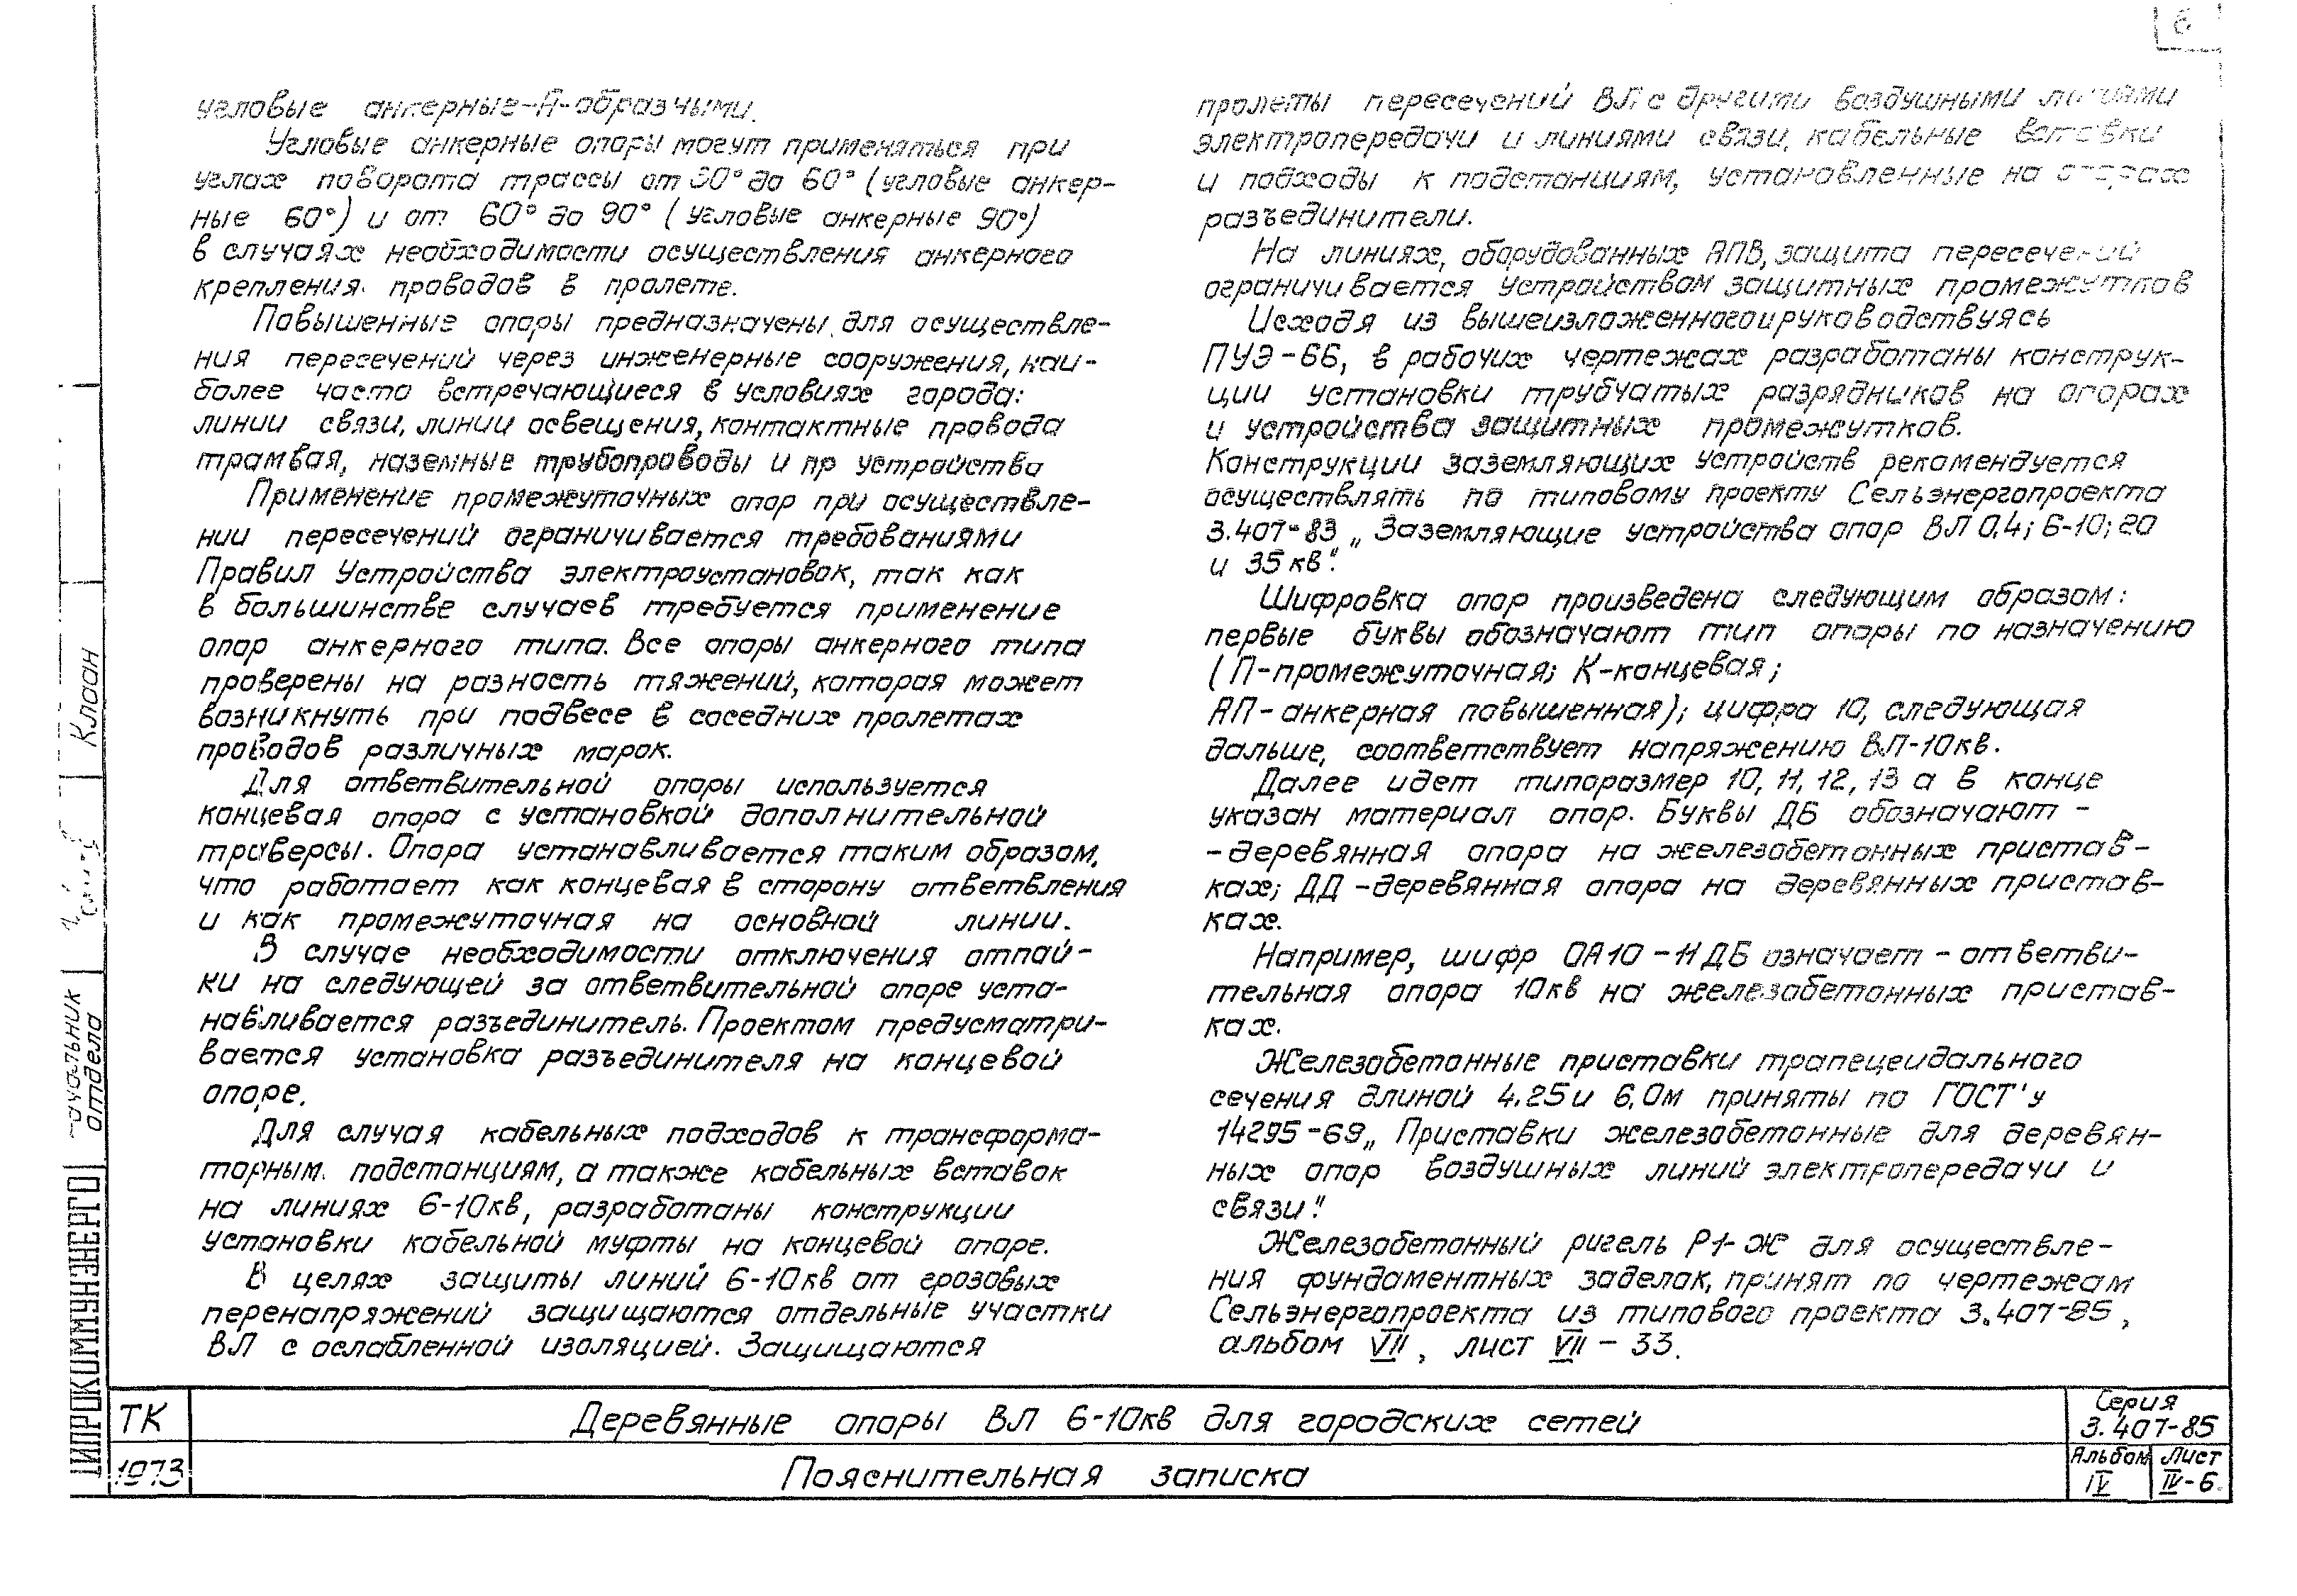 6
угловые анкерные-А-образными.
Угловые анкерные опоры могут применяться при
углах поворота трассы от 30° до 60° (угловые анкер-
ные 60°) и от 60° до 90° (угловые анкерные 90°)
в случаях необходимости осуществления анкерного
крепления проводов в пролете.
Повышенные опоры предназначены для осуществле-
ния пересечений через инженерные сооружения, наи-
более часто встречающиеся в условиях города:
линии связи, линии освещения, контактные провода
трамвая, наземные трубопроводы и пр устройства
Применение промежуточных опор при осуществле-
нии пересечений ограничивается требованиями
Правил Устройства электроустановок, так как
в большинстве случаев требуется применение
опор анкерного типа. Все опоры анкерного типа
проверены на разность тяжений, которая может
возникнуть при подвесе в соседних пролетах
проводов различных марок.
Для ответвительной опоры используется
концевая опора с установкой дополнительной
траверсы. Опора устанавливается таким образом,
что работает как концевая в сторону ответвления
и как промежуточная на основной линии.
В случае необходимости отключения отпай-
ки на следующей за ответвительной опоре уста-
навливается разъединитель. Проектом предусматри-
вается установка разъединителя на концевой
опоре.
Для случая кабельных подходов к трансформа-
торным подстанциям, а также кабельных вставок
на линиях 6-10кв, разработаны конструкции
установки кабельной муфты на концевой опоре.
В целях защиты линий 6-10кв от грозовых
перенапряжений защищаются отдельные участки
ВЛ с ослабленной изоляцией. Защищаются
пролеты пересечений ВЛ с другими воздушными линиями
электропередачи и линиями связи, кабельные вставки
и подходы к подстанциям, установленные на опорах
разъединители.
На линиях, оборудованных АПВ, защита пересечений
ограничивается устройством защитных промежутков
Исходя из вышеизложенного и руководствуясь
ПУЭ-66, в рабочих чертежах разработаны конструк-
ции установки трубчатых разрядников на опорах
и устройства защитных промежутков.
Конструкции заземляющих устройств рекомендуется
осуществлять по типовому проекту Сельэнергопроекта
3.407-83 „Заземляющие устройства опор ВЛ 0,4; 6-10; 20
и 35 кв".
Шифровка опор произведена следующим образом:
первые буквы обозначают тип опоры по назначению
(П-промежуточная; К-концевая;
АП-анкерная повышенная); цифра 10, следующая
дальше, соответствует напряжению ВЛ-10кв.
Далее идет типоразмер 10, 11, 12, 13 а в конце
указан материал опор. Буквы ДБ обозначают -
-деревянная опора на железобетонных пристав-
ках; ДД -деревянная опора на деревянных пристав-
ках.
Например, шифр ОА10-11ДБ означает - ответви-
тельная опора 10кв на железобетонных пристав-
ках.
Железобетонные приставки трапецеидального
сечения длиной 4.25 и 6,0м приняты по ГОСТ'у
14295-69„ Приставки железобетонные для деревян-
ных опор воздушных линий электропередачи и
связи".
Железобетонный ригель Р1-Ж для осуществле-
ния фундаментных заделок, принят по чертежам
Сельэнергопроекта из типового проекта 3.407-85,
альбом VII, лист VII - 33.
Клаан
начальник
отдела
ГИПРОКОММУНЭНЕРГО
ТК
1973
Деревянные опоры ВЛ 6-10кв для городских сетей
Пояснительная записка
Серия
3.407-85
Альбом
IV
Лист
IV-6